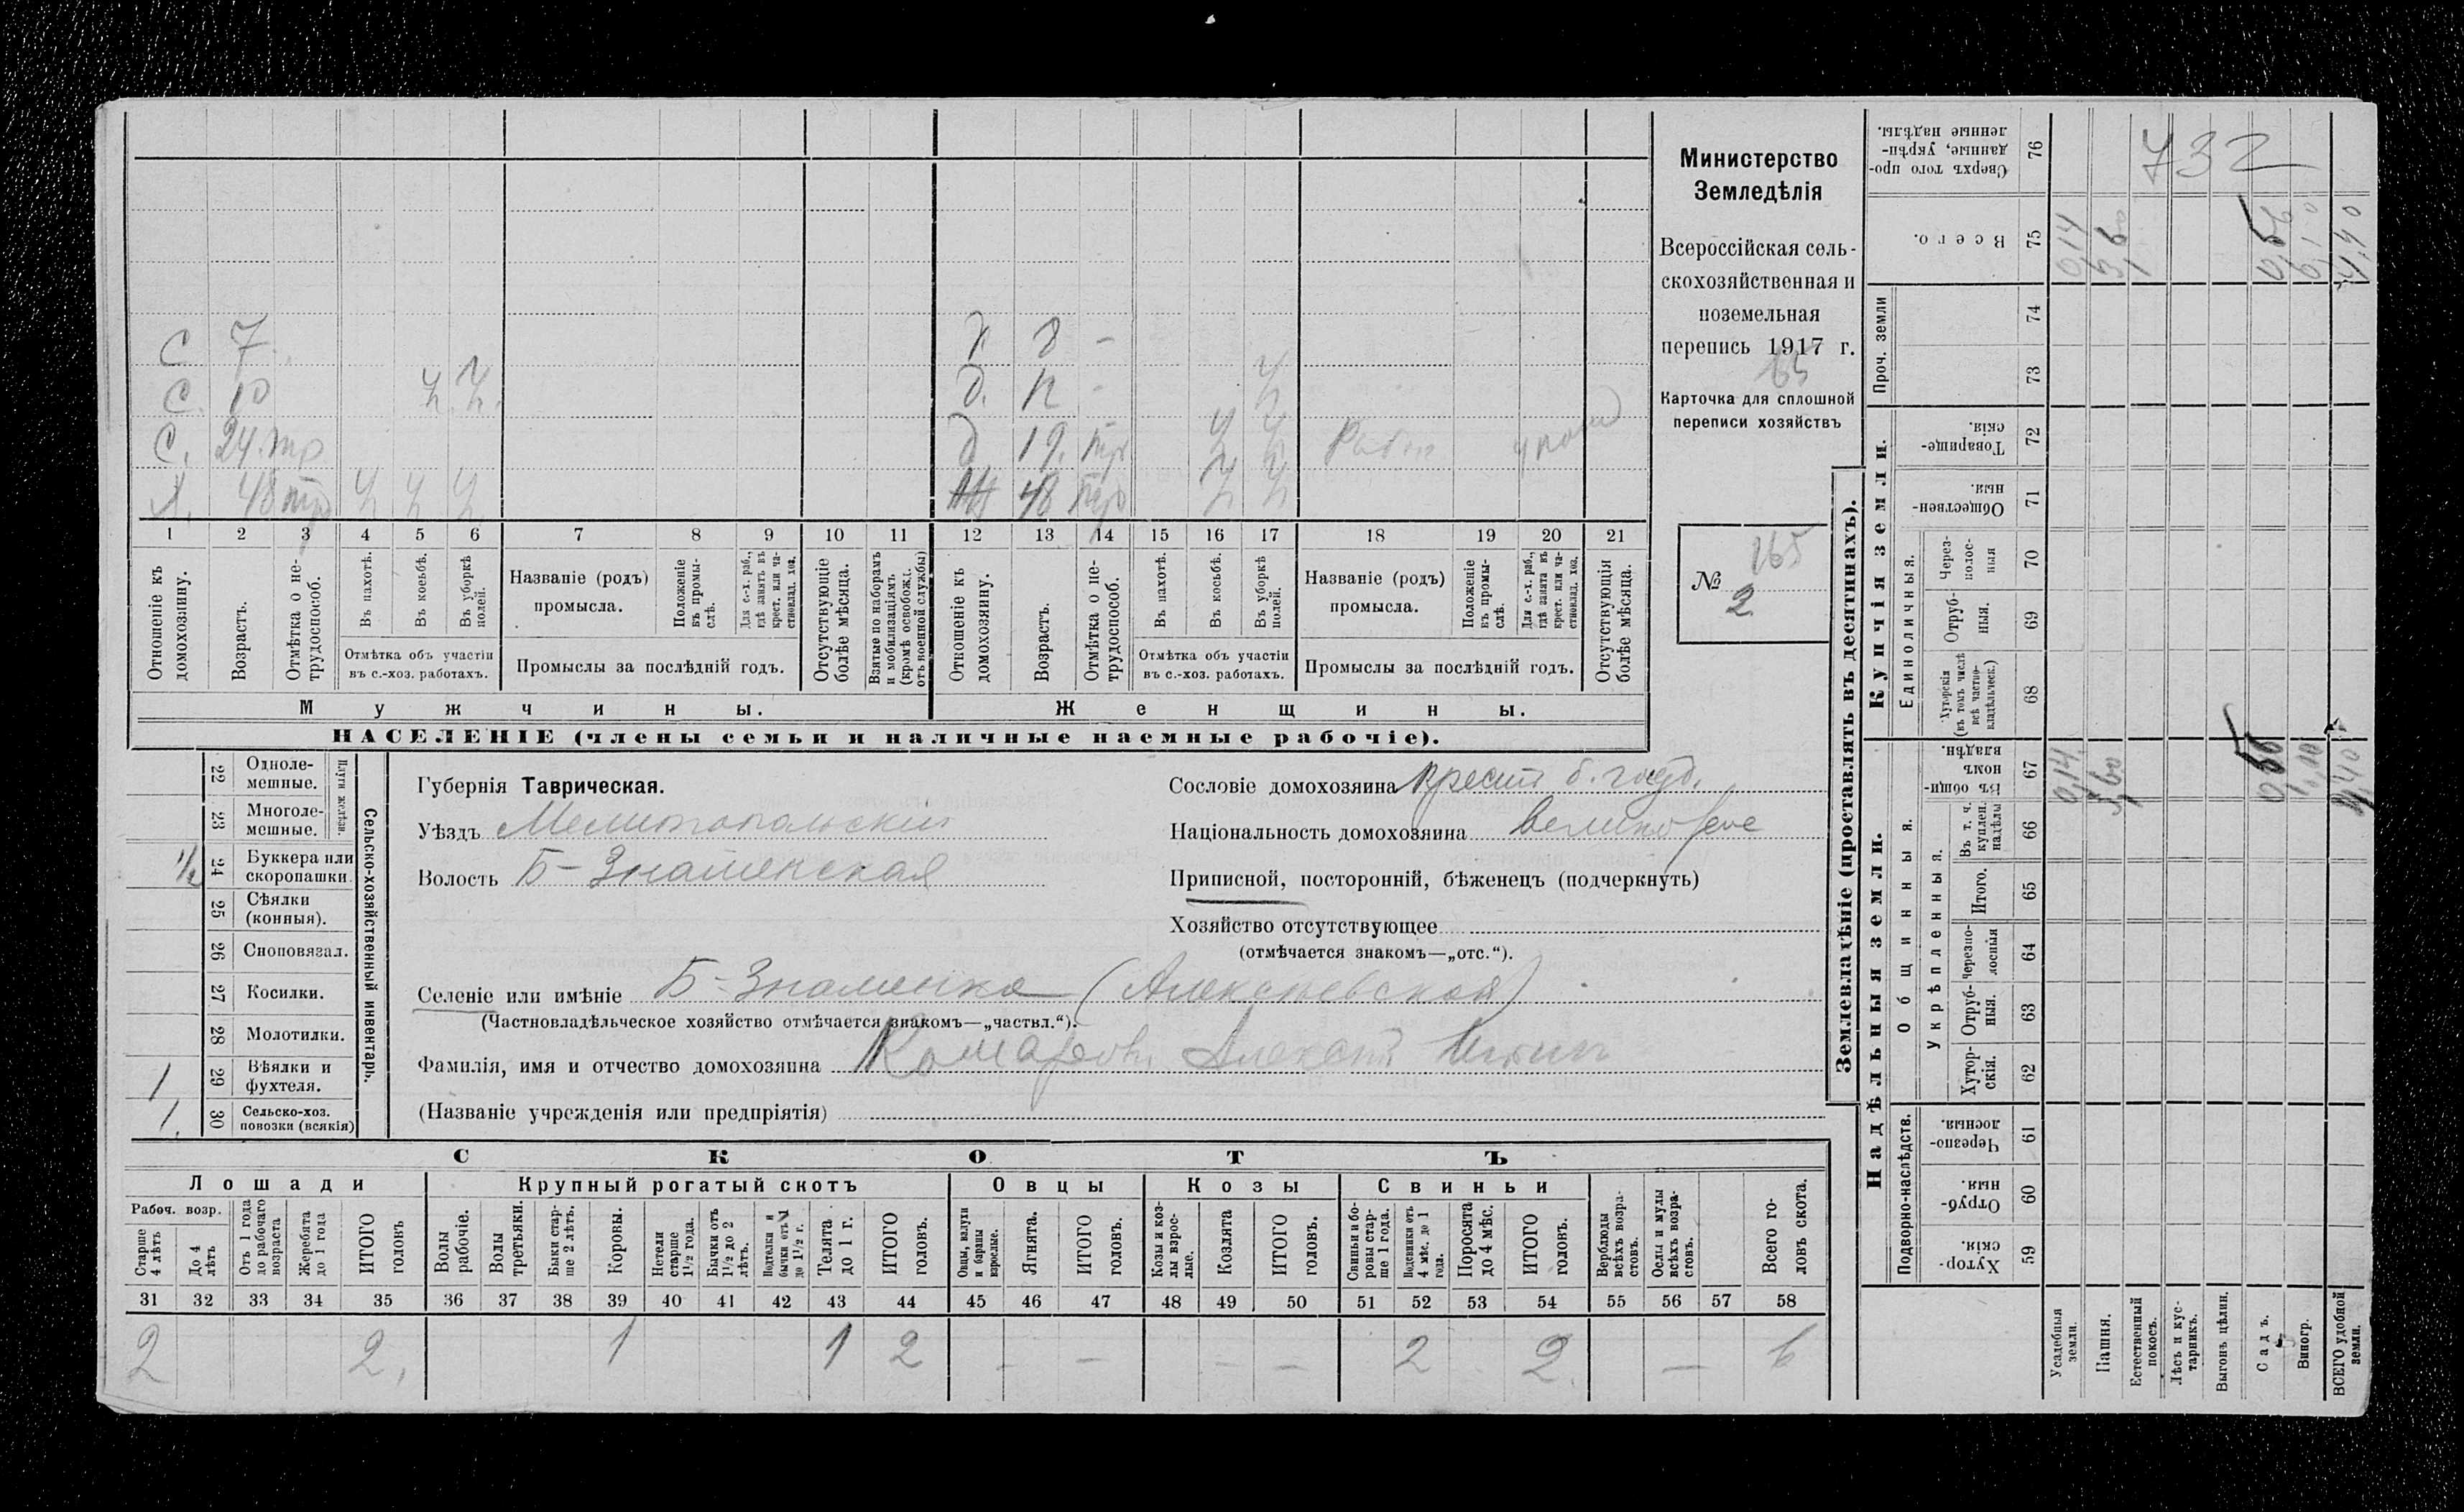 Министерство
Земледѣлія
Всероссійская сель-
скохозяйственная и
поземельная
перепись 1917 г.
65
Карточка для сплошной
переписи хозяйствъ
165
№ 2
С 7 Д 8 -
С. 10 ч. ч. д. 12 - ч
С. 24. тр д 19. тр ч ч
48 тр ч ч ч 48 тр ч ч
1 2 3 4 5 6 7 8 9 10 11 12 13 14 15 16 17 18 19 20 21
Отношеніе къ домохозяину.
Возрастъ.
Отмѣтка о не-трудоспособ.
Въ пахотѣ.
Въ косьбѣ.
Въ уборкѣ полей.
Отмѣтка объ участіи
въ с.-хоз. работахъ.
Названіе (родъ)
промысла.
Положеніе въ промы-слѣ.
Для с.-х. раб., гдѣ занятъ въ крест. или ча-стновлад. хоз.
Промыслы за послѣдній годъ.
Отсутствующіе болѣе мѣсяца.
Взятые по наборамъ и мобилизаціямъ (кромѣ освобожд. отъ военной службы)
Отношеніе къ домохозяину.
Возрастъ.
Отмѣтка о не-трудоспособ.
Въ пахотѣ.
Въ косьбѣ.
Въ уборкѣ полей.
Отмѣтка объ участіи
въ с.-хоз. работахъ.
Названіе (родъ)
промысла.
Положеніе въ промы-слѣ.
Для с.-х. раб., гдѣ занята въ крест. или ча-стновлад. хоз.
Промыслы за послѣдній годъ.
Отсутствующія болѣе мѣсяца.
Мужчины. Женщины.
НАСЕЛЕНІЕ (члены семьи и наличные наемные рабочіе).
Сельско-хозяйственный инвентарь.
Плуги желѣзн.
22 Одноле-мешные.
23 Многоле-мешные.
1/2 24 Буккера или скоропашки.
25 Сѣялки (конныя).
26 Сноповязал.
27 Косилки.
28 Молотилки.
1 29 Вѣялки и фухтеля.
1. 30 Сельско-хоз. повозки (всякія)
Губернія Таврическая.
Уѣздъ Мелитопольскій
Волость Б-Знаменская
Сословіе домохозяина крест
Національность домохозяина
Приписной, посторонній, бѣженецъ (подчеркнуть)
Хозяйство отсутствующее
(отмѣчается знакомъ—„отс.“).
Селеніе или имѣніе Б-Знаменка (Алексѣевская)
(Частновладѣльческое хозяйство отмѣчается знакомъ—„частвл.“).
Фамилія, имя и отчество домохозяина Комаровъ
(Названіе учрежденія или предпріятія)
СКОТЪ
Лошади Крупный рогатый скотъ Овцы Козы Свиньи
Рабоч. возр.
Старше 4 лѣтъ
До 4 лѣтъ
Отъ 1 года до рабочаго возраста
Жеребята до 1 года
ИТОГО головъ
Волы рабочіе.
Волы третьяки.
Быки стар-ше 2 лѣтъ.
Коровы.
Нетели старше 1 1/2 года.
Бычки отъ 1 1/2 до 2 лѣтъ.
Подтелки и бычки отъ 1 до 1 1/2 г.
Телята до 1 г.
ИТОГО головъ.
Овцы, валухи и бараны взрослые.
Ягнята.
ИТОГО головъ.
Козы и коз-лы взрос-лые.
Козлята
ИТОГО головъ.
Свиньи и бо-ровы стар-ше 1 года.
Подсвинки отъ 4 мѣс. до 1 года.
Поросята до 4 мѣс.
ИТОГО головъ.
Верблюды всѣхъ возра-стовъ.
Ослы и мулы всѣхъ возра-стовъ.
Всего го-ловъ скота.
31 32 33 34 35 36 37 38 39 40 41 42 43 44 45 46 47 48 49 50 51 52 53 54 55 56 57 58
2 2, 1 1 2 - - - - 2 2. - 6
Землевладѣніе (проставлять въ десятинахъ).
732
76 Сверхъ того про-данные, укрѣп-ленные надѣлы.
75 Всего. 0,14 3,60 4,40
Проч. земли
74
73
Купчія земли.
72 Товарище-скія.
71 Обществен-ныя.
Единоличныя.
70 Через-полос-ныя
69 Отруб-ныя.
68 Хуторскія (въ томъ числѣ всѣ частно-владѣльческ.)
Надѣльныя земли.
Общинныя.
67 Въ общи-номъ владѣн. 0,14. 3,60 4,40
Укрѣпленныя.
66 Въ т. ч. куплен. надѣлы
65 Итого.
64 Черезпо-лосныя
63 Отруб-ныя.
62 Хутор-скія.
Подворно-наслѣдств.
61 Черезпо-лосныя.
60 Отруб-ныя.
59 Хутор-скія.
Усадебныя земли.
Пашня.
Естественный покосъ.
Лѣсъ и кус-тарникъ.
Выгонъ цѣлин.
Садъ.
Виногр.
ВСЕГО удобной земли.